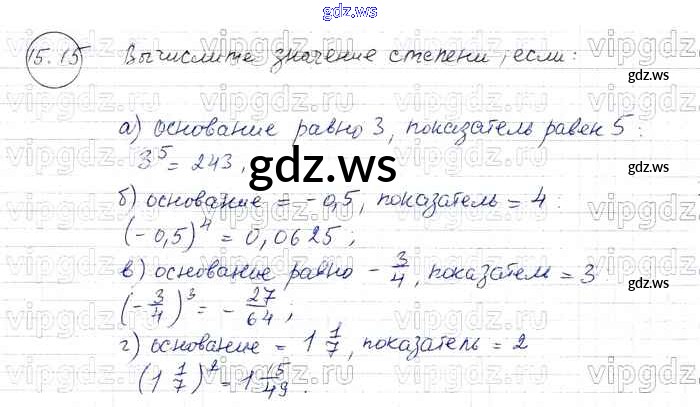 gdz.ws
15.15 Вычислите значение степени, если:
gdz.ws
а) основание равно 3, показатель равен 5:
3⁵ = 243,
gdz.ws
б) основание = -0,5, показатель = 4
(-0,5)⁴ = 0,0625;
в) основание равно -3/4, показатель = 3
(-3/4)³ = -27/64;
г) основание = 1 1/7, показатель = 2
(1 1/7)² = 1 15/49.
gdz.ws
vipgdz